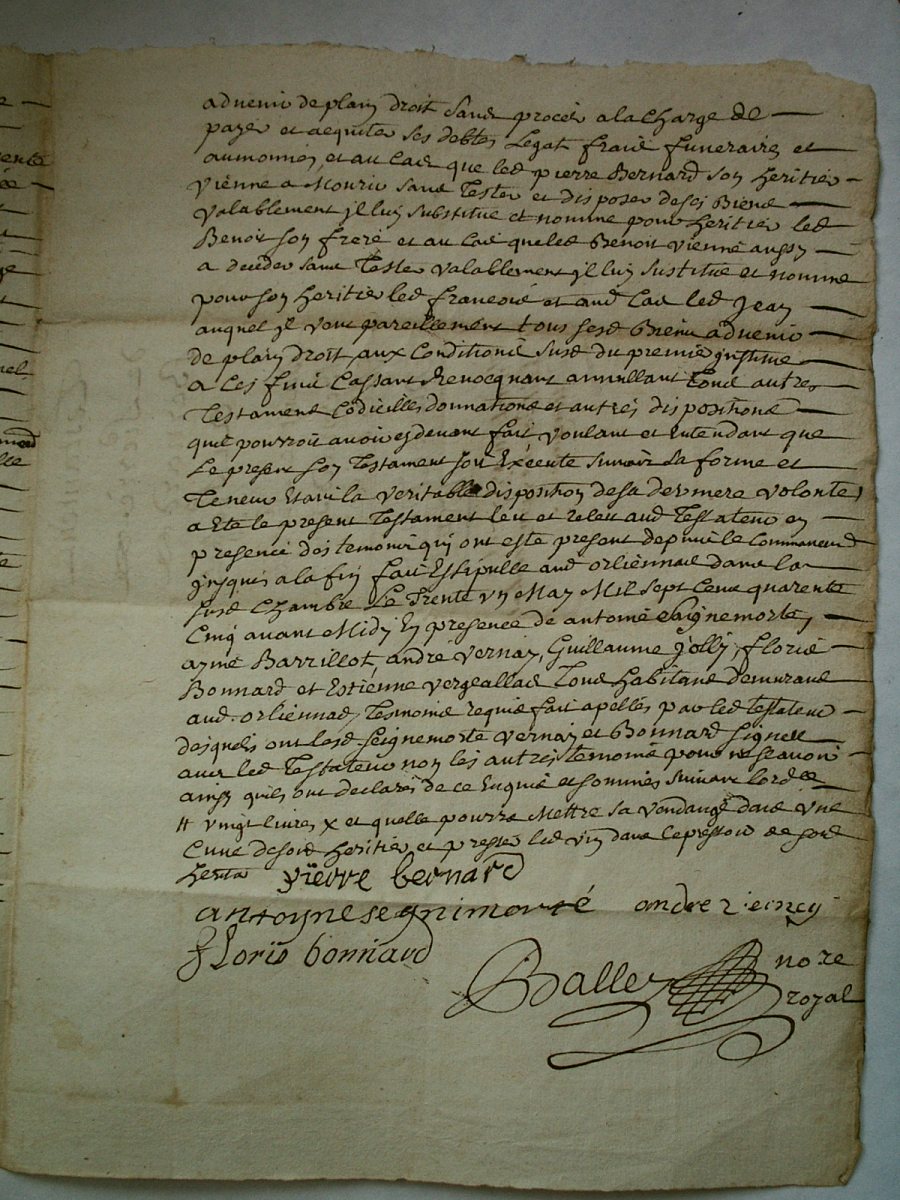 advenir de plain droit sans procès a la charge de
payer et acquiter ses debtes Legat fraid funeraires et
aumonnes, et au cas que led pierre Bernard son heritier
vienne a Mourir sans Tester et disposer de ses Biens
valablement jl luy substitue et nomme pour heritier led
Benoit son frere et au cas que led Benoit vienne aussy
a deceder sans Tester valablement jl luy sustitue et nomme
pour son heritier led francois et aud cas led Jean
auquel jl veut pareillement tous sesd Biens advenir
de plain droit aux Conditions susd du premier jnstitue
a ces fins Cassant Revocquant annullant tous autres
Testament Codicilles donnations et autres dispositions
quil pourroit avoir cy devant fait voulant et Entendant que
Le present son Testament soit Execute suivant sa forme et
Teneur Etant la veritable disposition de sa derniere volonté
a Ete le present Testament leu et releu aud Testateur en
presence des temoins qui ont esté present depuis le Commancem
jusques a la fin fait Et stipullé aud orliennas dans la
susd Chambre Le Trente un May Mil sept Cens quarente
Cinq avant Midy En presence de antoine Seignemorte,
aymé Barrillot, andré vernay, Guillaume jolly, Floris
Bonnard et Estienne vergeallas Tous habitans demurans
aud. orliennas, Tesmoins requis fait apellés par led testateur
desquels ont lesd. Seignemorte vernay et Bonnard Signé
avec led Testateur non les autres temoins pour ne scavoir
ainsy quils ont declarés de ce Enquis et sommés suivant lordce
# vingt livres x et quelle pourra Mettre sa vendange dans une
Cuve de sond heritier et presser led vin dans le pressoir de sond
herit pierre bernard
antoyne segnimorté andre
floris bonnard
Balley no re
royal